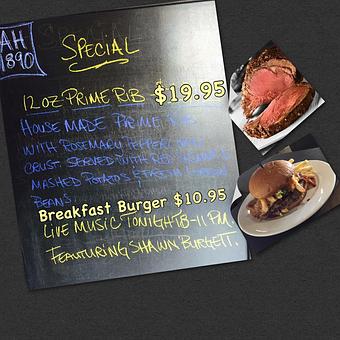 AH
1890
SPECIAL
12 OZ PRIME RIB - $19.95
HOUSE MADE PRIME RIB
WITH ROSEMARY PEPPER
CRUST SERVED WITH RED
MASHED POTATO'S & FRESH GREEN
BEANS
Breakfast Burger $10.95
LIVE MUSIC TONIGHT 8-11 PM
FEATURING SHAWN BURGETT.